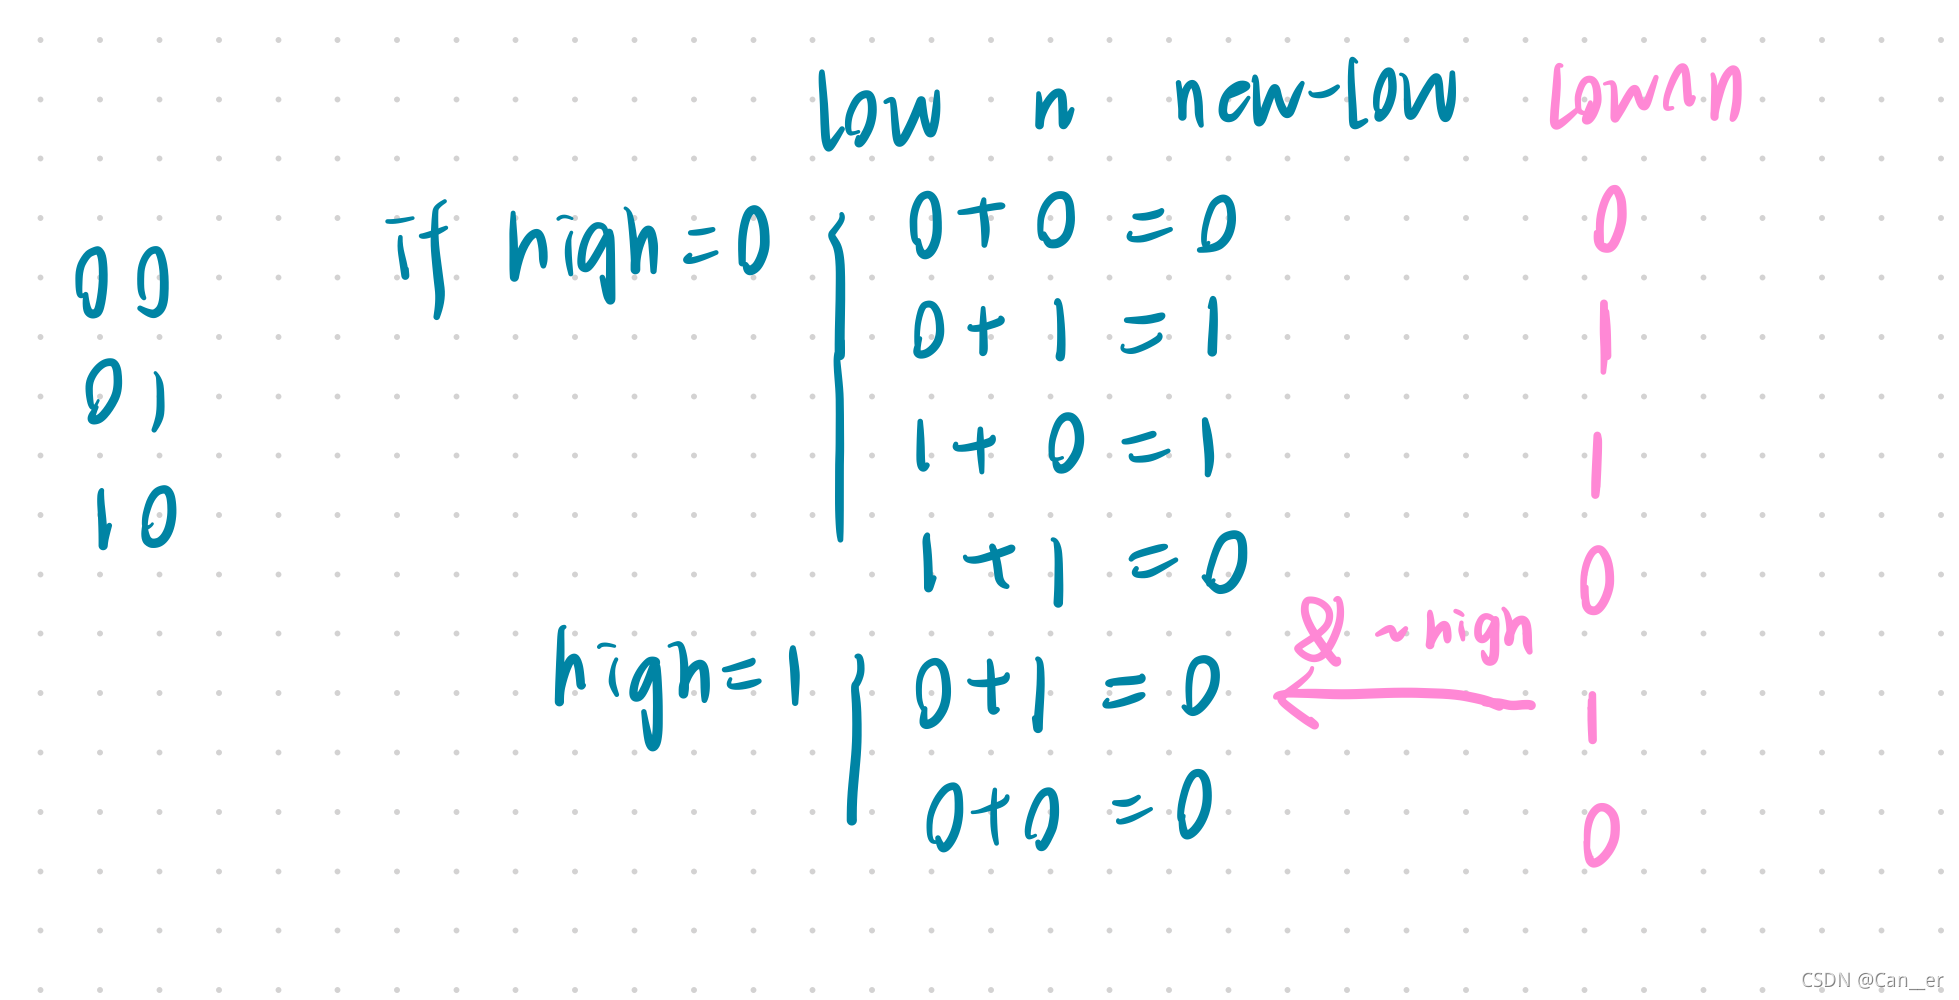 low n new-low low^n
if high=0 0+0=0 0
00 0+1=1 1
01 1+0=1 1
10 1+1=0 0
& ~high
high=1 0+1=0 1
0+0=0 0
CSDN @Can__er